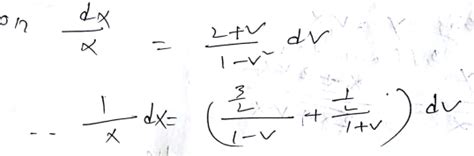 on dx/x = (2+v)/(1-v²) dv
∴ 1/x dx = ( (3/2)/(1-v) + (1/2)/(1+v) ) dv